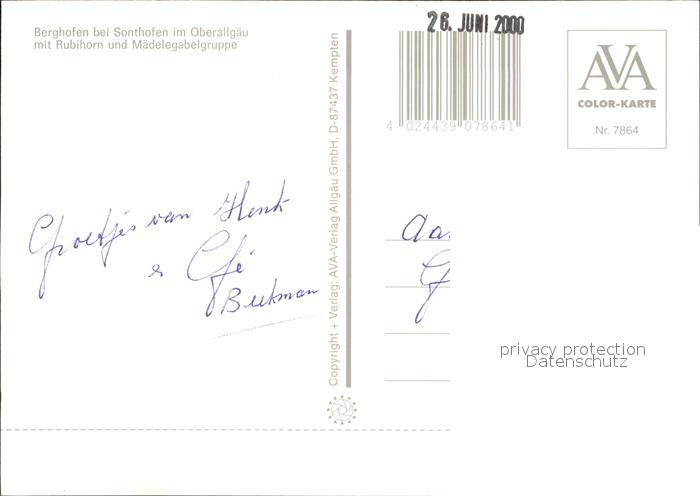 Berghofen bei Sonthofen im Oberallgäu
mit Rubihorn und Mädelegabelgruppe
26. JUNI 2000
4 024439 078641
AVA
COLOR-KARTE
Nr. 7864
Copyright + Verlag: AVA-Verlag Allgäu GmbH, D-87437 Kempten
Groetjes van Henk
Beekman
Aa
G
privacy protection
Datenschutz